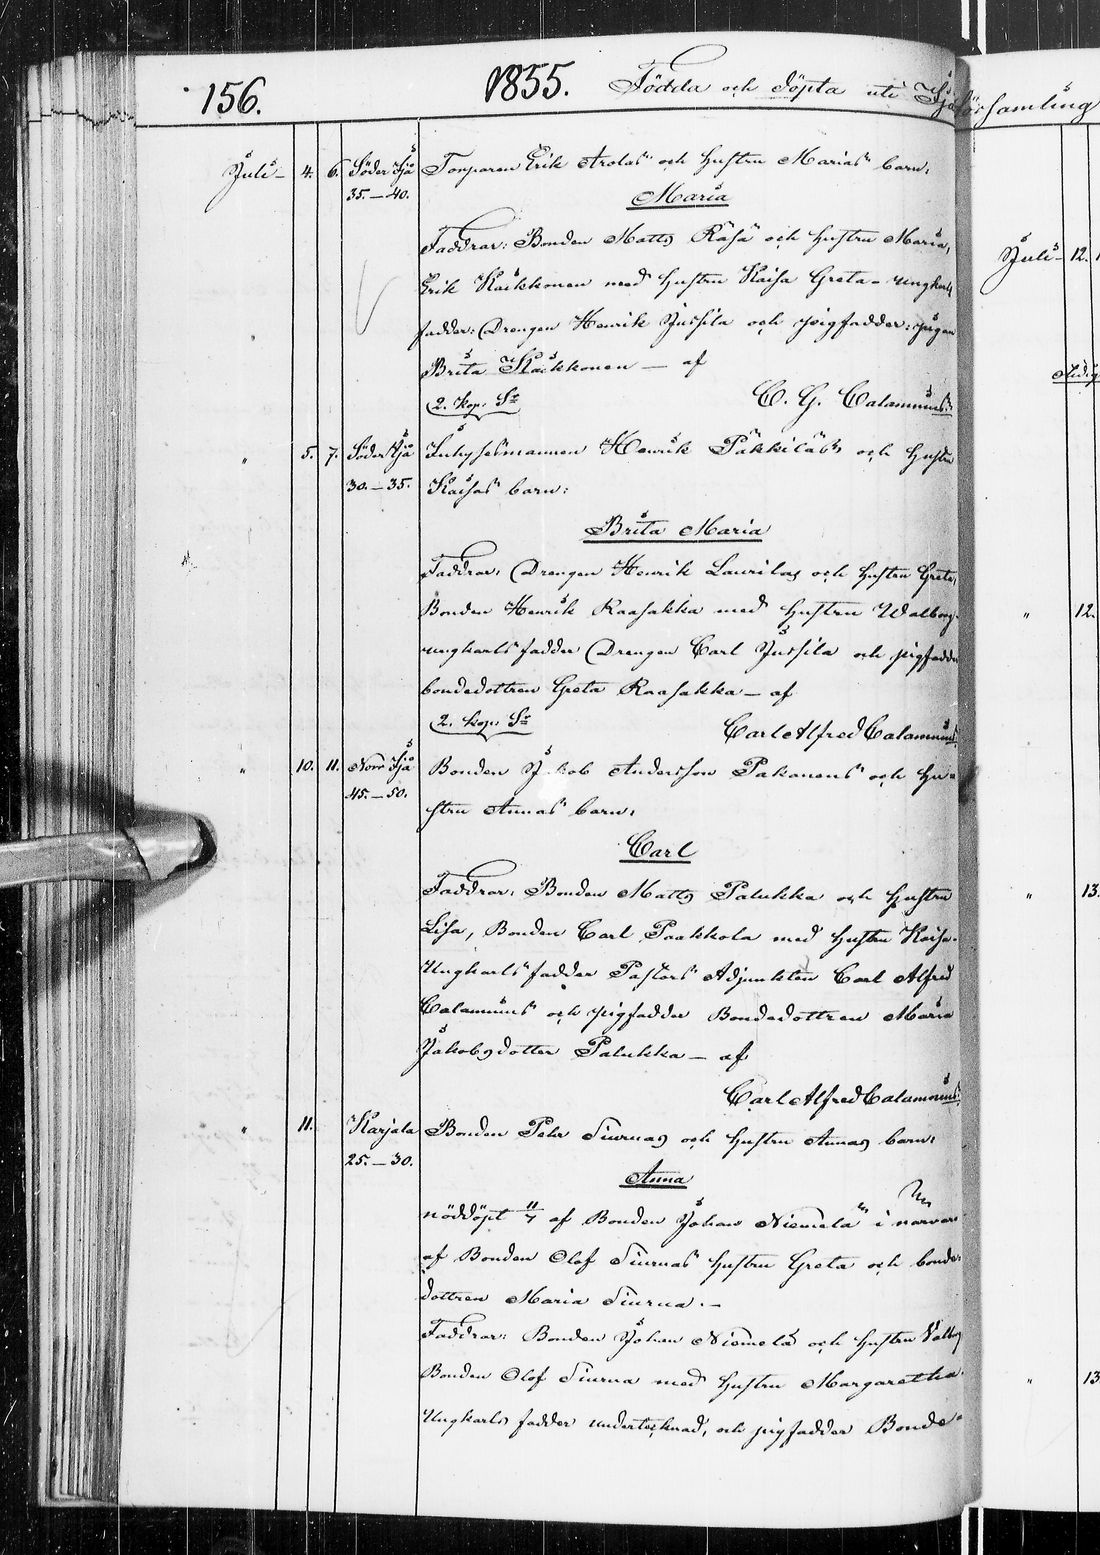 156. 1855. Födda och döpta uti Ijo församling
Juli 4. 6. Söder Ijo Torparen Erik Arolas och hustru Marias barn:
35.—40. Maria
Faddrar: Bonden Matts Rasa och hustru Maria,
Erik Kaikkonen med hustru Kaisa Greta. ungkarls
fadder: Drengen Henrik Jussila och pigfadder: pigan
Brita Kaikkonen — af
2. kop. Sr C. G. Calamnius.
" 5. 7. Söder Ijo Henrik Päkkiläs och hustru
30.—35. Kaisas barn:
Brita Maria
Faddrar: Drengen Henrik Laurila och hustru Greta,
Bonden Henrik Raasakka med hustru Walborg.
ungkarls fadder Drengen Carl Jussila och pigfadder
bondedottren Greta Raasakka — af
2. kop. Sr Carl Alfred Calamnius.
" 10. 11. Norr Ijo Bonden Jakob Andersson Pakonens och hu-
45.—50. stru Annas barn:
Carl
Faddrar: Bonden Matts Palukka och hustru
Lisa, Bonden Carl Paakkola med hustru Kaisa.
Ungkarls fadder Pastors Adjunkten Carl Alfred
Calamnius och pigfadder Bondedottren Maria
Jakobsdotter Palukka — af
Carl Alfred Calamnius.
" 11. Karjala Bonden Pehr Siurnas och hustru Annas barn:
25.—30. Anna
nöddöpt 11/7 af Bonden Johan Niemelä i närvaro
af Bonden Olof Siurnas hustru Greta och bonde-
dottren Maria Siurna.—
Faddrar: Bonden Johan Niemelä och hustru
Bonden Olof Siurna med hustru Margaretha
Ungkarls fadder undertecknad, och pigfadder Bonde-
Juli 12.
" 12.
" 13.
" 13